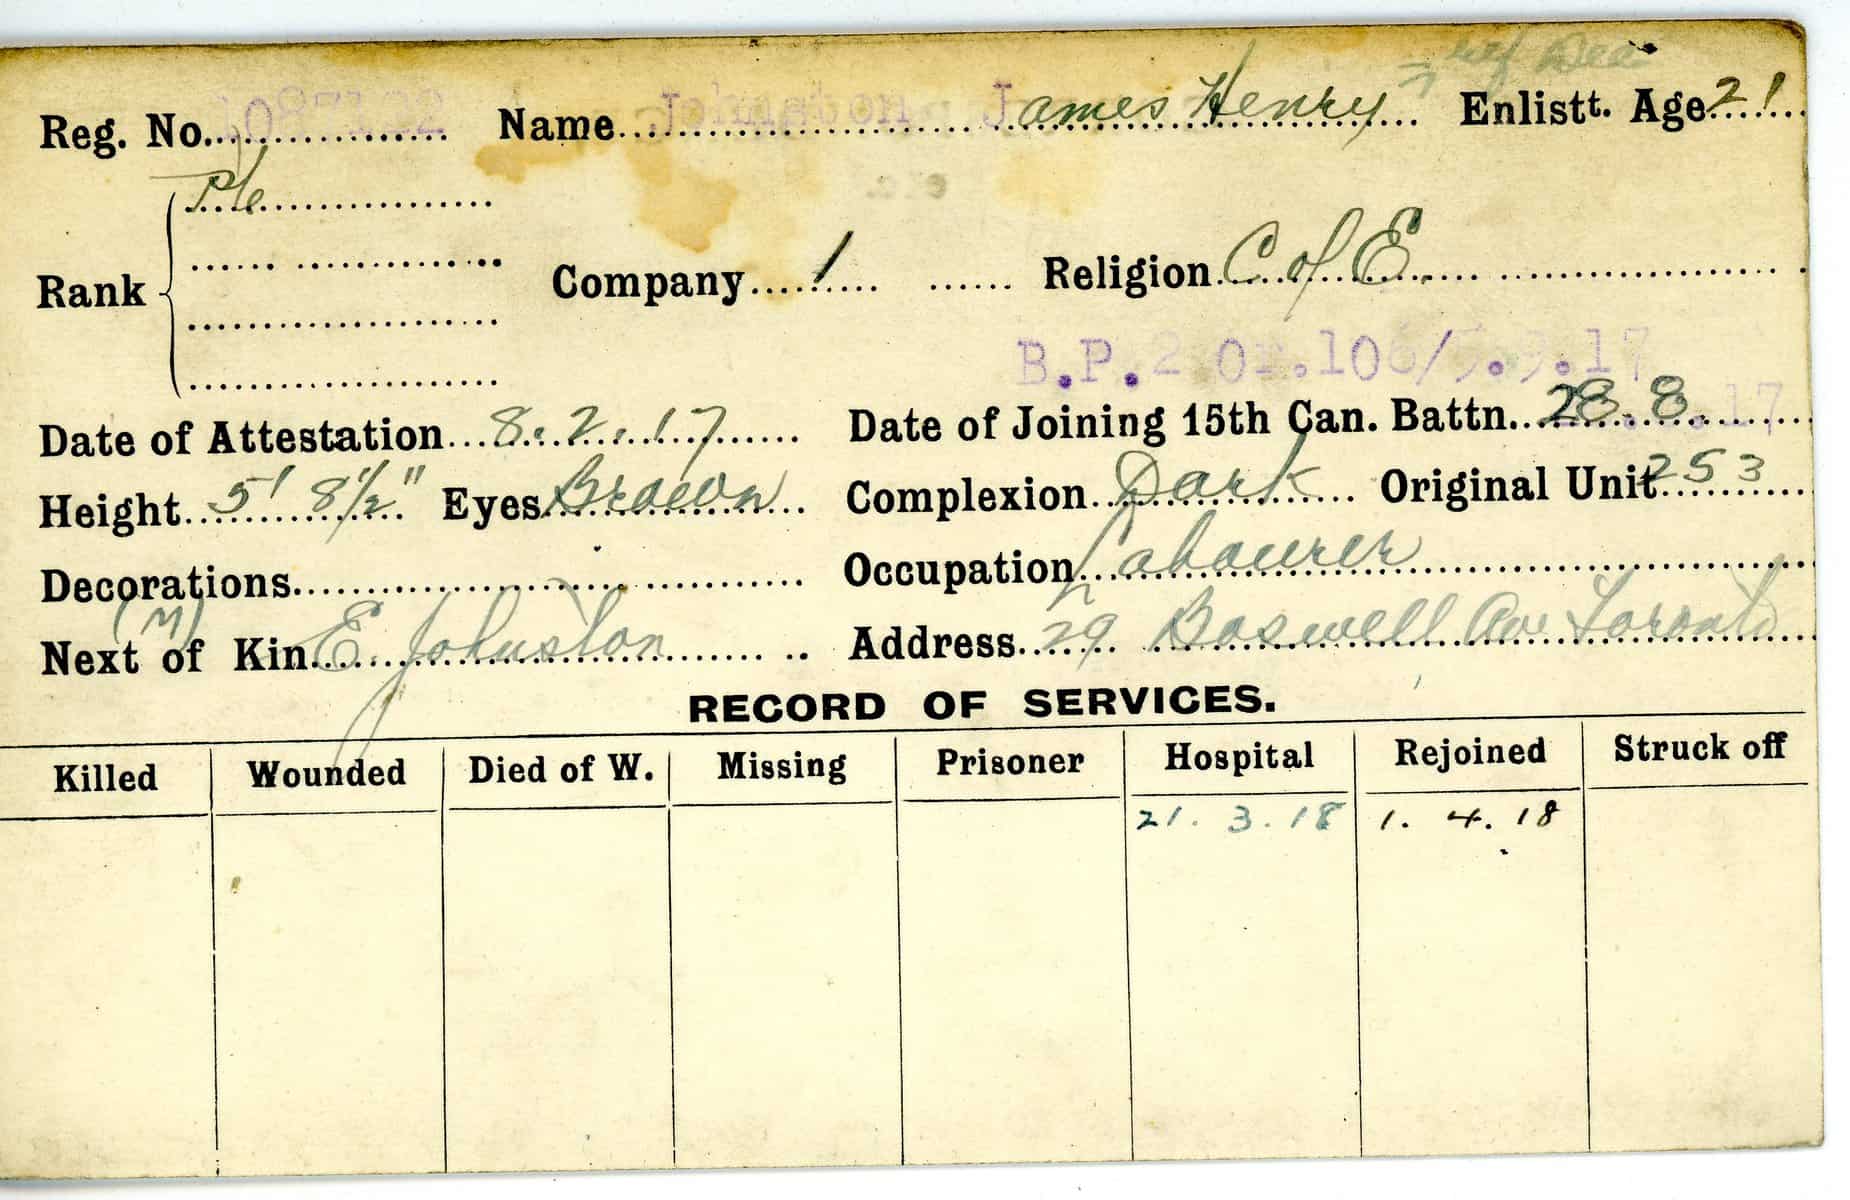 Reg. No. Name Johnston James Henry Enlistt. Age 21
Pte
Rank Company 1 Religion C of E.
B.P.2 Or.106/5.9.17
Date of Attestation 8.2.17 Date of Joining 15th Can. Battn. 28.8.17
Height 5' 8½" Eyes Brown Complexion Dark Original Unit 253
Decorations Occupation Labourer
(M)
Next of Kin E. Johnston Address 29 Boswell Ave Toronto
RECORD OF SERVICES.
Killed Wounded Died of W. Missing Prisoner Hospital Rejoined Struck off
21. 3. 18 1. 4. 18